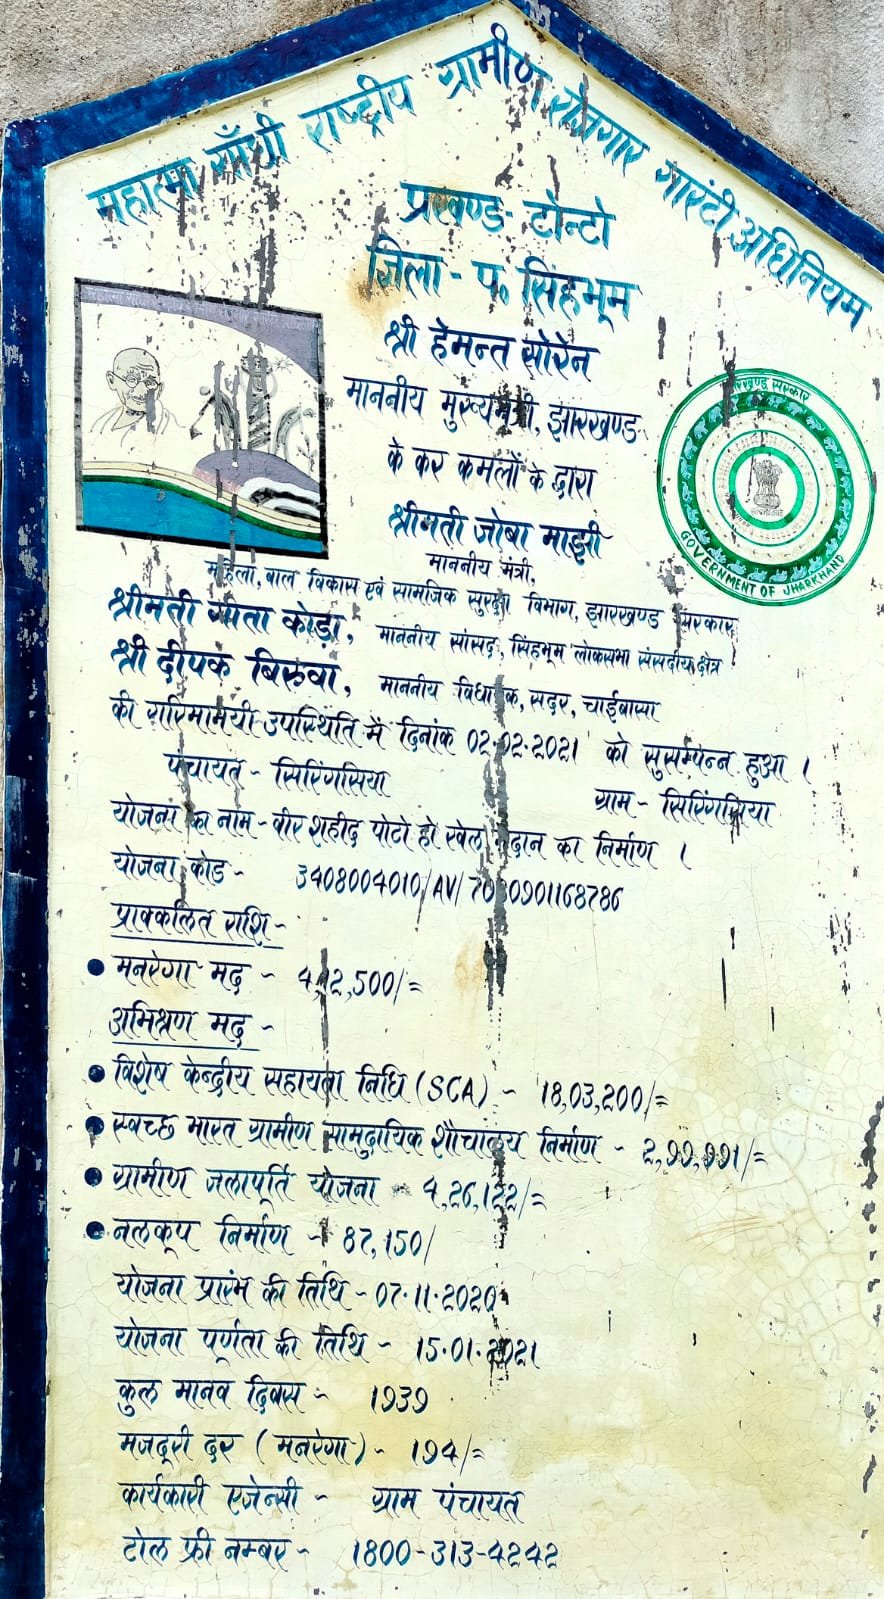 महात्मा गाँधी राष्ट्रीय ग्रामीण रोजगार गारंटी अधिनियम
प्रखण्ड- टोन्टो
जिला - प० सिंहभूम
श्री हेमन्त सोरेन
माननीय मुख्यमंत्री, झारखण्ड
के कर कमलों के द्वारा
श्रीमती जोबा माझी
माननीय मंत्री,
महिला, बाल विकास एवं सामाजिक सुरक्षा विभाग, झारखण्ड सरकार
श्रीमती गीता कोड़ा, माननीय सांसद, सिंहभूम लोकसभा संसदीय क्षेत्र
श्री दीपक बिरुवा, माननीय विधायक, सदर, चाईबासा
की गरिमामयी उपस्थिति में दिनांक 02.02.2021 को सुसम्पन्न हुआ ।
पंचायत - सिरिंगसिया ग्राम - सिरिंगसिया
योजना का नाम - वीर शहीद पोटो हो खेल मैदान का निर्माण ।
योजना कोड - 3408004010/AV/
प्राक्कलित राशि -
• मनरेगा मद -
अभिश्रण मद -
• विशेष केन्द्रीय सहायता निधि (SCA) - 18,03,200/=
• स्वच्छ भारत ग्रामीण सामुदायिक शौचालय निर्माण - 2,99,991/=
• ग्रामीण जलापूर्ति योजना - 4,26,122/=
• नलकूप निर्माण - 87,150/
योजना प्रारंभ की तिथि - 07.11.2020
योजना पूर्णता की तिथि - 15.01.2021
कुल मानव दिवस - 1939
मजदूरी दर (मनरेगा) - 194/=
कार्यकारी एजेन्सी - ग्राम पंचायत
टोल फ्री नम्बर - 1800-313-4242
झारखण्ड सरकार
GOVERNMENT OF JHARKHAND